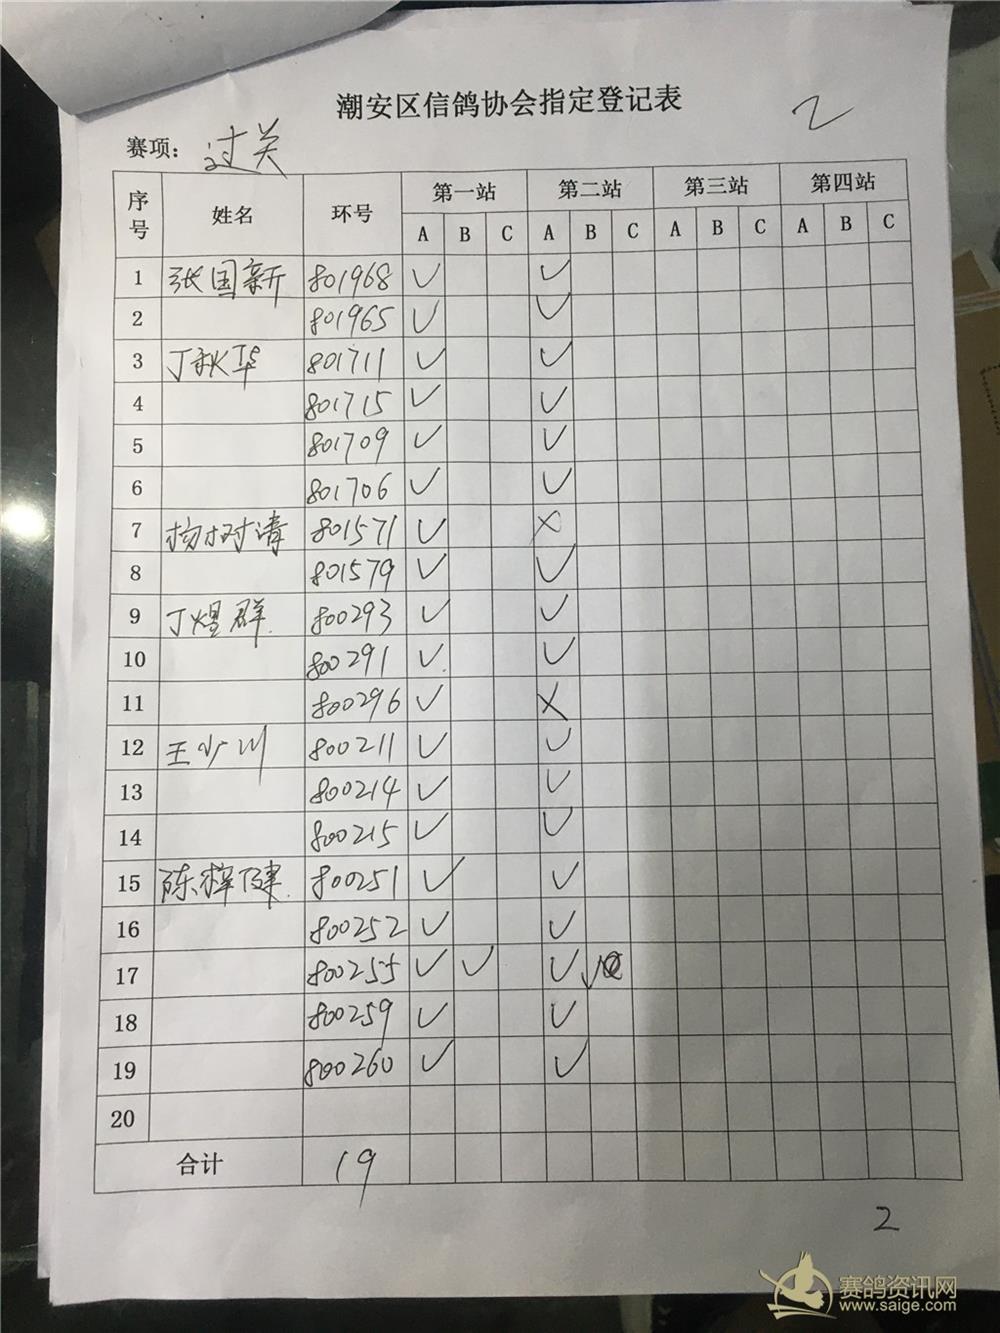 潮安区信鸽协会指定登记表
2
赛项: 过关
序号 姓名 环号 第一站 第二站 第三站 第四站
A B C A B C A B C A B C
1 张国新 801968 ✓ ✓
2 801965 ✓ ✓
3 丁秋华 801711 ✓ ✓
4 801715 ✓ ✓
5 801709 ✓ ✓
6 801706 ✓ ✓
7 杨树清 801571 ✓ ×
8 801579 ✓ ✓
9 丁煜群 800293 ✓ ✓
10 800291 ✓ ✓
11 800296 ✓ ×
12 王少川 800211 ✓ ✓
13 800214 ✓ ✓
14 800215 ✓ ✓
15 陈梓健 800251 ✓ ✓
16 800252 ✓ ✓
17 800255 ✓ ✓ ✓ ✓
18 800259 ✓ ✓
19 800260 ✓ ✓
20
合计 19
2
赛鸽资讯网
www.saige.com